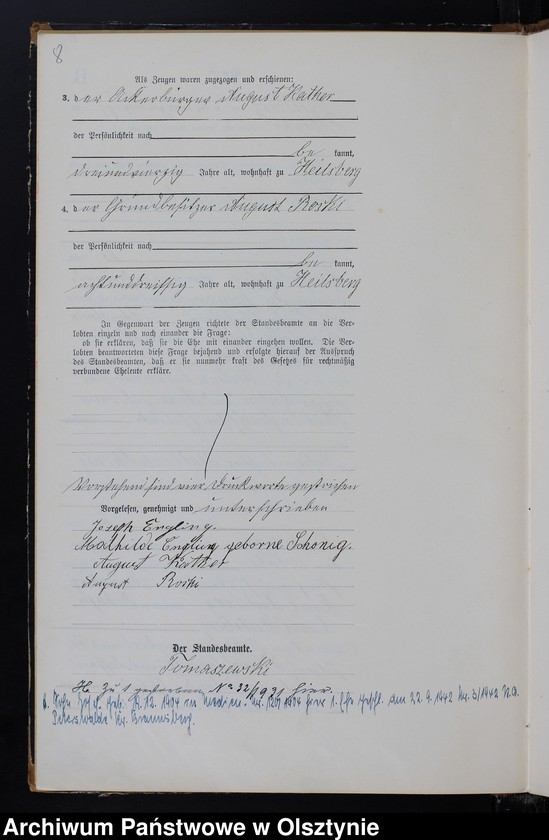 8
Als Zeugen waren zugezogen und erschienen:
3. der Ackerbürger August Kather
der Persönlichkeit nach
be kannt,
dreiundvierzig Jahre alt, wohnhaft zu Heilsberg
4. der Grundbesitzer August Roski
der Persönlichkeit nach
be kannt,
achtunddreissig Jahre alt, wohnhaft zu Heilsberg
In Gegenwart der Zeugen richtete der Standesbeamte an die Ver-
lobten einzeln und nach einander die Frage:
ob sie erklären, daß sie die Ehe mit einander eingehen wollen. Die Ver-
lobten beantworteten diese Frage bejahend und erfolgte hierauf der Ausspruch
des Standesbeamten, daß er sie nunmehr kraft des Gesetzes für rechtmäßig
verbundene Eheleute erkläre.
Vorstehend sind vier Druckworte gestrichen
Vorgelesen, genehmigt und unterschrieben
Joseph Engling.
Mathilde Engling geborne Schönig.
August Kather
August Roski
Der Standesbeamte.
Tomaszewski
zu 1 gestorben No 32/1931 hier.
geb. 12. 1904 in Medien. Nr. 1904 hier 1. Ehe geschl. am 22. 9. 1942 Nr. 3/1942
Peterswalde Kr. Braunsberg.
Archiwum Państwowe w Olsztynie